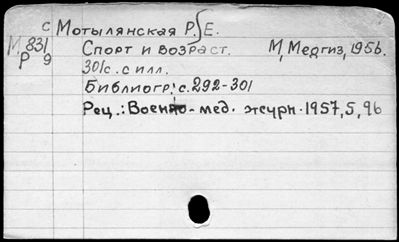 с Мотылянская Р.Е.
М 831 Спорт и возраст. М, Медгиз, 1956.
Р 9
301с. с илл.
Библиогр: с. 292-301
Рец.: Военно-мед. журн. 1957, 5, 96